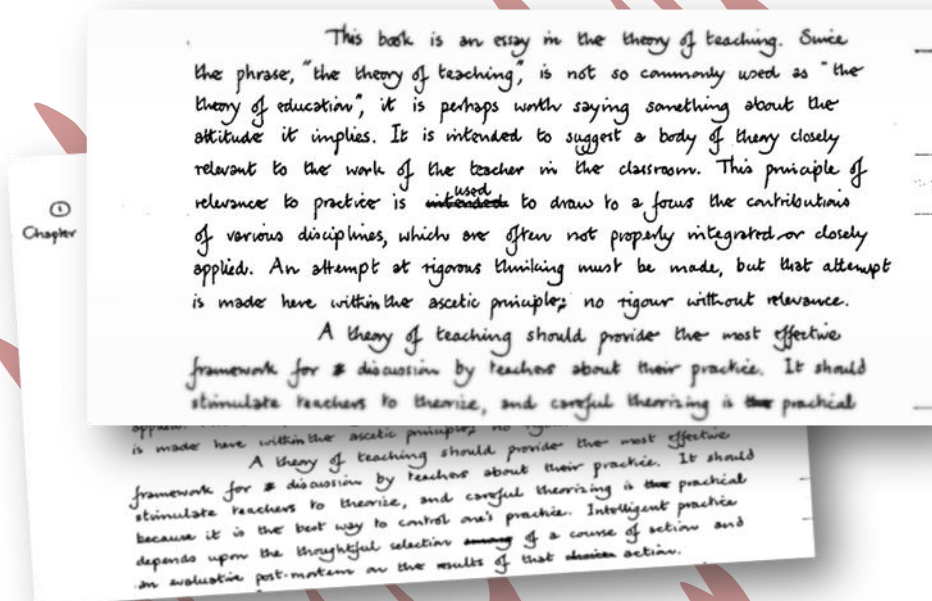 This book is an essay in the theory of teaching. Since
the phrase, "the theory of teaching", is not so commonly used as "the
theory of education", it is perhaps worth saying something about the
attitude it implies. It is intended to suggest a body of theory closely
relevant to the work of the teacher in the classroom. This principle of
relevance to practice is intended used to draw to a focus the contributions
of various disciplines, which are often not properly integrated or closely
applied. An attempt at rigorous thinking must be made, but that attempt
is made here within the ascetic principle; no rigour without relevance.
A theory of teaching should provide the most effective
framework for discussion by teachers about their practice. It should
stimulate teachers to theorize, and careful theorizing is the practical
1
Chapter
is made here within the ascetic principle; no
A theory of teaching should provide the most effective
framework for discussion by teachers about their practice. It should
stimulate teachers to theorize, and careful theorizing is the practical
because it is the best way to control one's practice. Intelligent practice
depends upon the thoughtful selection among of a course of action and
an evaluative post-mortem on the results of that choice action.